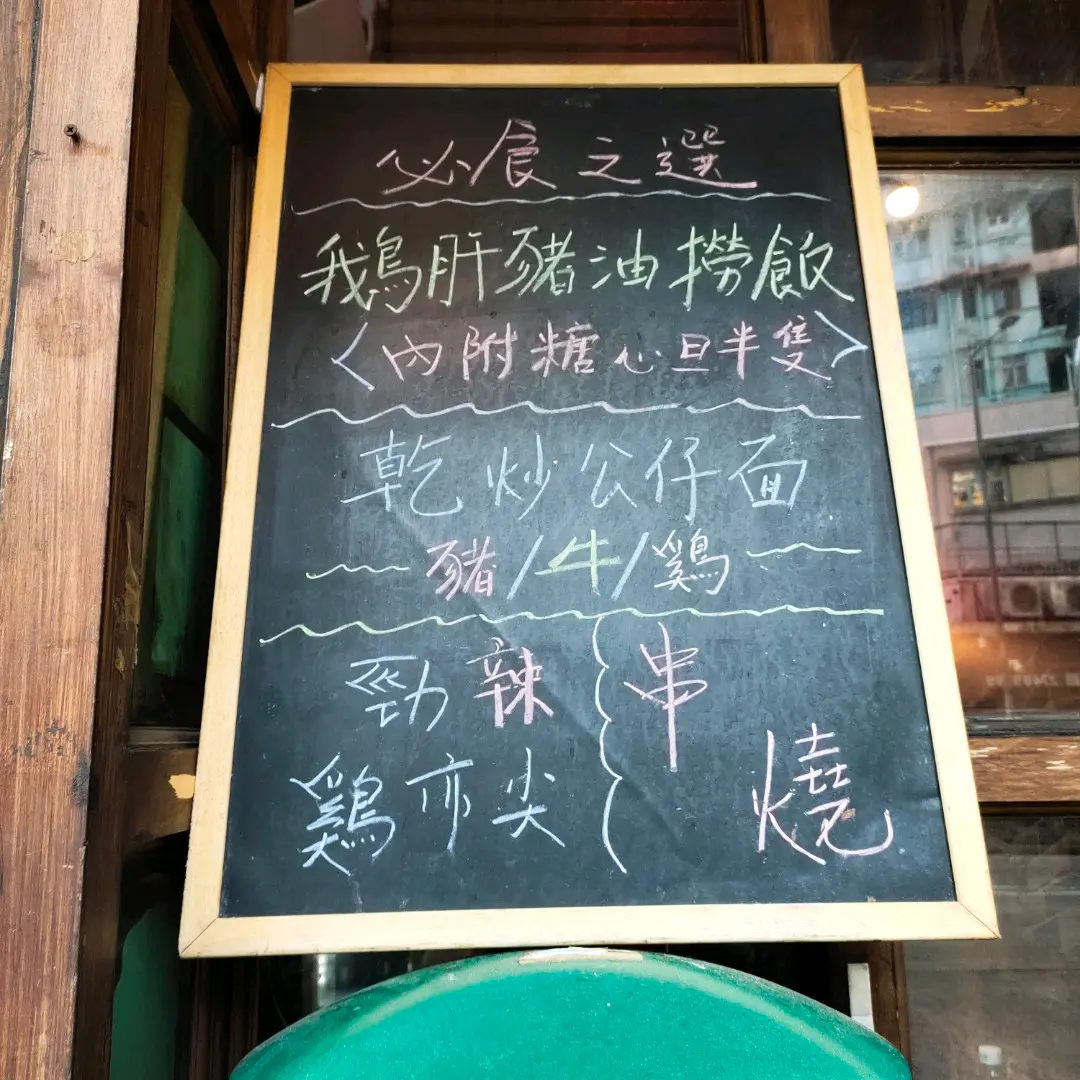 必食之選
我鳥肝豬油撈飯
<內附糖心旦半隻>
乾炒公仔面
豬/牛/鷄
勁辣
鷄亦尖
串燒